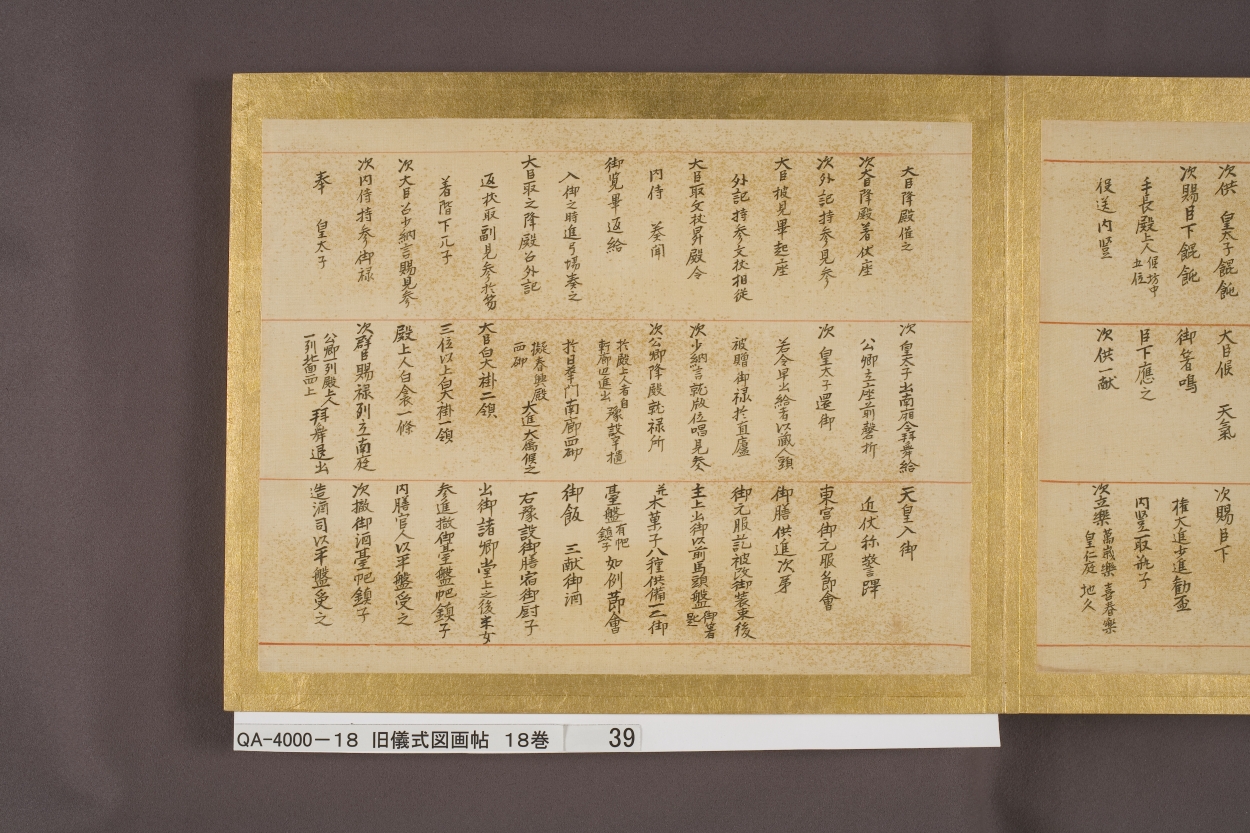 次供 皇太子餛飩
次賜臣下餛飩
手長殿上人 候坊中
五位
役送内竪
大臣候 天氣
御箸鳴
臣下應之
次供一献
次賜臣下
権大進少進勧盃
内竪取瓶子
次立樂 萬歳樂 喜春樂
皇仁庭 地久
大臣降殿催之
次大臣降殿著仗座
次外記持参見参
大臣披見畢起座
外記持参文杖相従
大臣取文杖昇殿令
内侍 奏聞
御覧畢返給
入御之時進弓場奏之
大臣取之降殿召外記
返杖取副見参於笏
着階下兀子
次大臣召少納言賜見参
次内侍持参御禄
奉 皇太子
次 皇太子出南廂令拜舞給
公卿立座前磬折
次 皇太子還御
若令早出給者以蔵人頭
被贈御禄於直廬
次少納言就版位唱見参
次公卿降殿就禄所
於殿上人者自
軒廊辺進出 豫設辛櫃
於日華門南廊西砌
擬春興殿
西砌 大進大属候之
大臣白大褂二領
三位以上白大褂一領
殿上人白衾一條
次群臣賜禄列立南庭
公卿一列殿上人
一列北面西上 拜舞退出
天皇入御
近仗称警蹕
東宮御元服節會
御膳供進次第
御元服訖被改御装束後
主上出御以前馬頭盤 御箸
匙
并木菓子八種供備一二御
臺盤 有帊
鎮子 如例節會
御飯 三献御酒
右豫設御膳宿御厨子
出御諸卿堂上之後采女
参進撤御臺盤帊鎮子
内膳官人以平盤受之
次撤御酒臺帊鎮子
造酒司以平盤受之
QA-4000-18 旧儀式図画帖 18巻 39